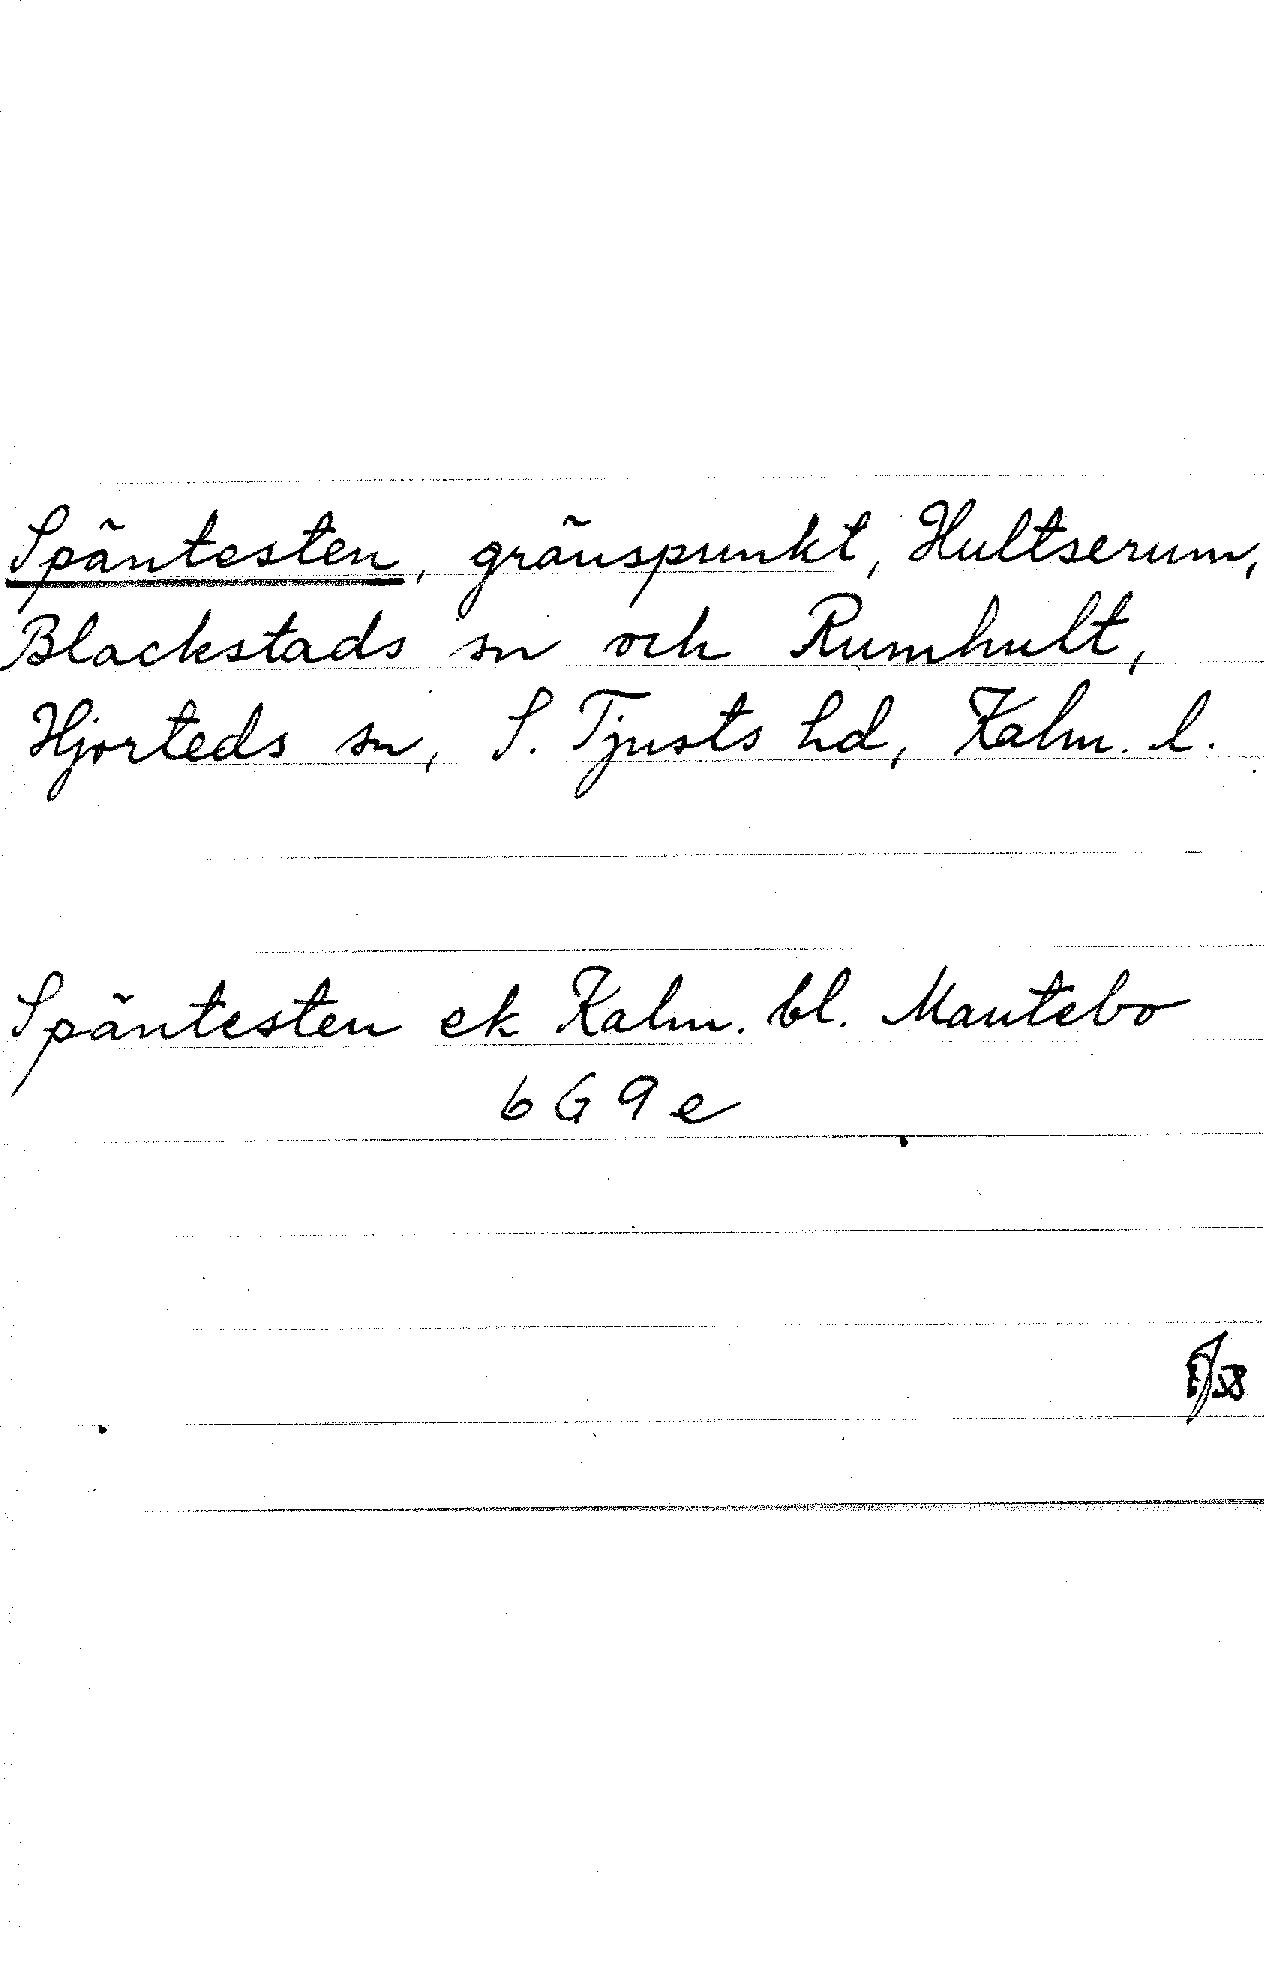 Späntesten, gränspunkt, Hultserum,
Blackstads sn och Rumhult,
Hjorteds sn, S. Tjusts hd, Kalm. l.
Späntesten ek Kalm. bl. Mantebo
6 G 9 e